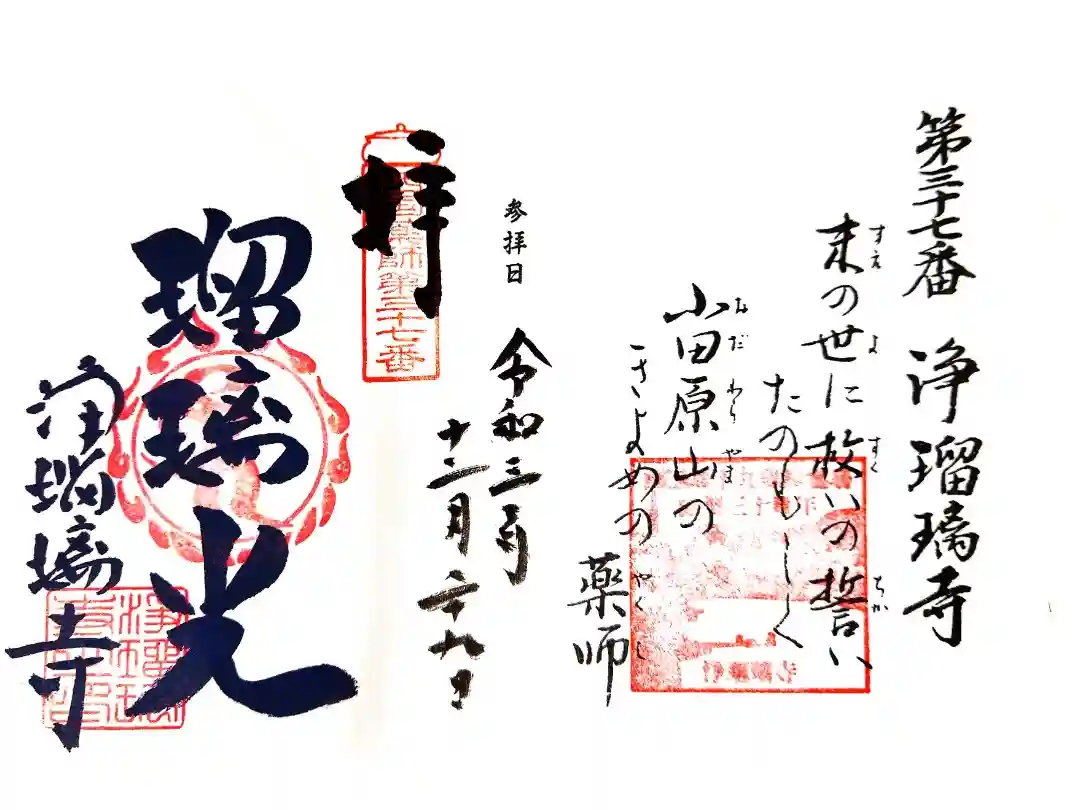 第三十七番 浄瑠璃寺
末の世に救いの誓い
すえ よ すく ちかい
たのもしく
小田原山の
おだ わら やま
きよめの
薬師
やくし
参拝日
令和三年
十二月二十九日
拝
西国薬師第三十七番
瑠璃光
浄瑠璃寺
浄瑠璃寺